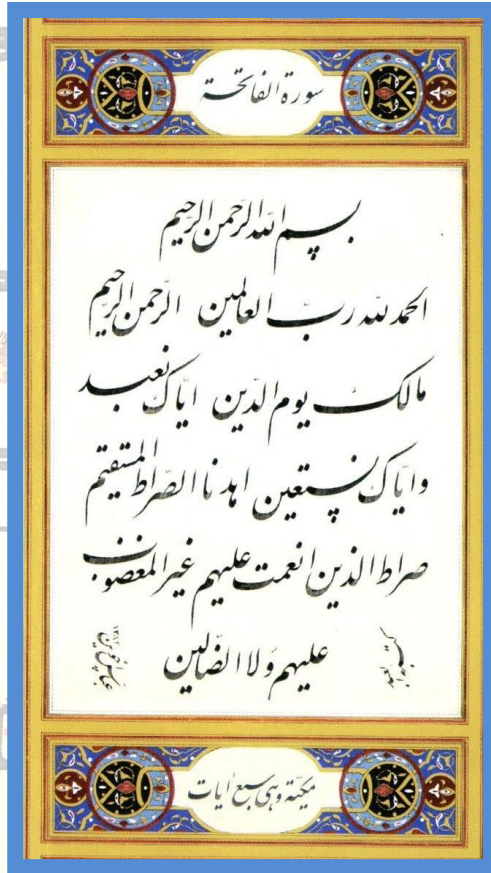 سورة الفاتحة
بسم الله الرّحمن الرّحیم
الحمد لله ربّ العالمین الرّحمن الرّحیم
مالک یوم الدّین ایّاک نعبد
وایّاک نستعین اهدنا الصّراط المستقیم
صراط الذین انعمت علیهم غیر المغضوب
علیهم وَلا الضّالین
مکیّة وهی سبع ایات